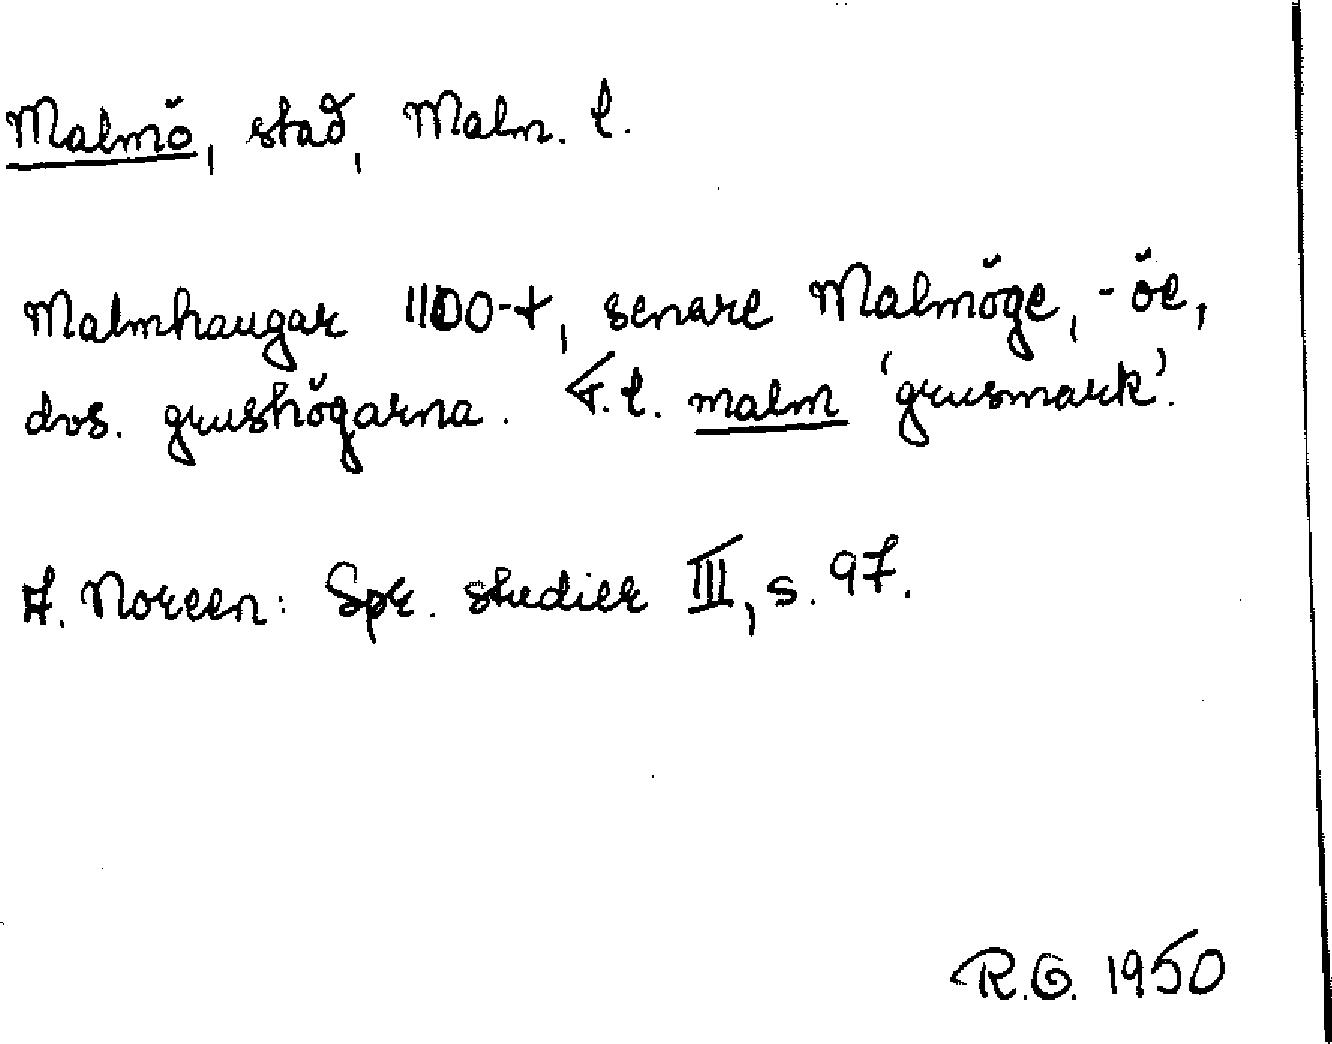 Malmö, stad, Malm. l.
Malmhaugar 1100-t, senare Malmöge, -öe,
dvs. grushögarna. F.l. malm 'grusmark'.
A. Noreen: Spr. studier III, s. 97.
R.G. 1950